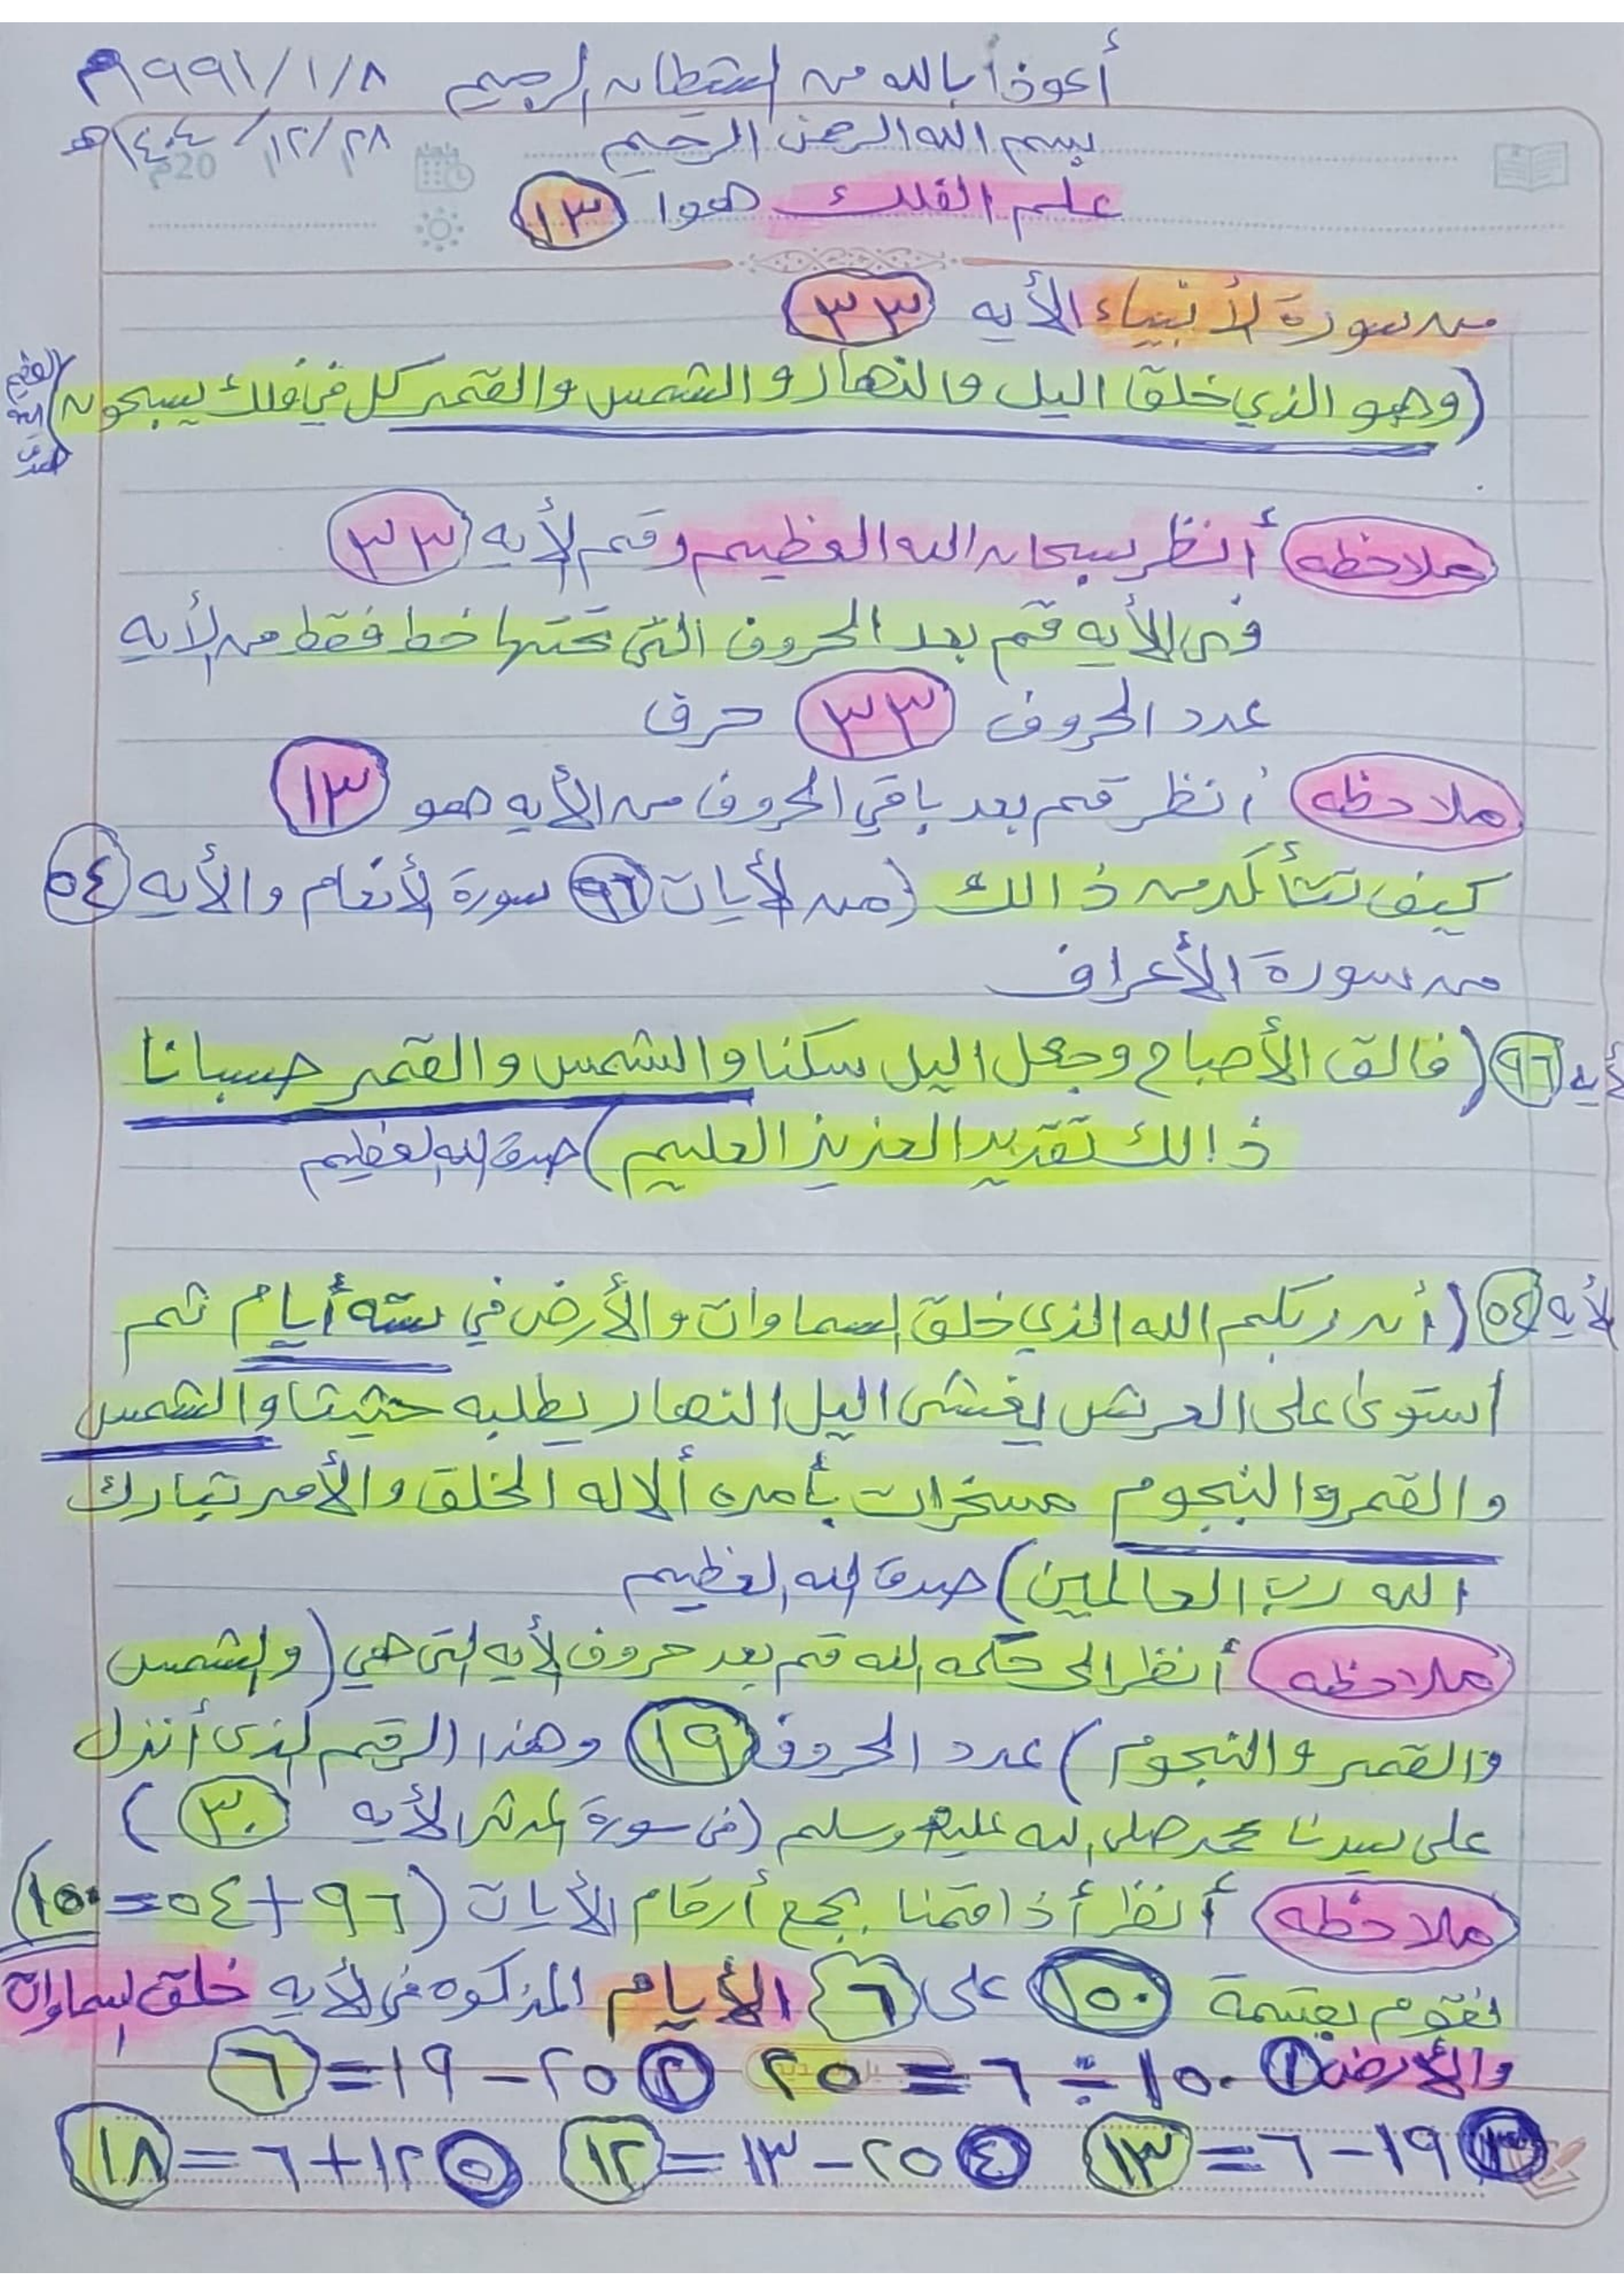 أعوذا بالله من الشيطان الرجيم ١٩٩١/١/٨م
بسم الله الرحمن الرحيم ١٢/٢٨/
20م
علم الفلك هوا ١٣
من سورة لأنبياء الأيه ٣٣
(وهو الذي خلق اليل والنهار والشمس والقمر كل في فلك يسبحون) صدق الله العظيم
ملاحظه أنظر سبحان الله العظيم رقم لأيه ٣٣
في الأيه قم بعد الحروف التي تحتها خط فقط من لأيه
عدد الحروف ٣٣ حرف
ملاحظه أنظر قم بعد باقي الحروف من الأيه هو ١٣
كيف تتأكد من ذالك (من لأيات ٩٦ سورة لأنعام والأيه ٥٤
من سورة الأعراف
أيه ٩٦ (فالق الأصباح وجعل اليل سكنا والشمس والقمر حسبانا
ذالك تقدير العزيز العليم) صدق الله لعظيم
لأيه ٥٤ (أن ربكم الله الذي خلق السماوات والأرض في سته أيام ثم
أستوى على العرش يغشى اليل النهار يطلبه حثيثا والشمس
والقمر والنجوم مسخرات بأمره ألاله الخلق والأمر تبارك
الله رب العالمين) صدق الله العظيم
ملاحظه أنظر الى حكمه الله قم بعد حروف لأيه التي هي (والشمس
والقمر والنجوم) عدد الحروف ١٩ وهذا الرقم لذي أنزل
على سيدنا محمد صلى الله عليه وسلم (في سورة المدثر الأيه ٣٠)
ملاحظه أنظر أذا قمنا بجمع أرقام الأيات (٩٦+٥٤=١٥٠)
نقوم بقسمة ١٥٠ على ٦ الأيام المذكوره في لأيه خلق السماوات
والأرض ١ ١٥٠ ÷ ٦ = ٢٥ ٢ ٢٥ - ١٩ = ٦
٣ ١٩ - ٦ = ١٣ ٤ ٢٥ - ١٣ = ١٢ ٥ ١٢ + ٦ = ١٨